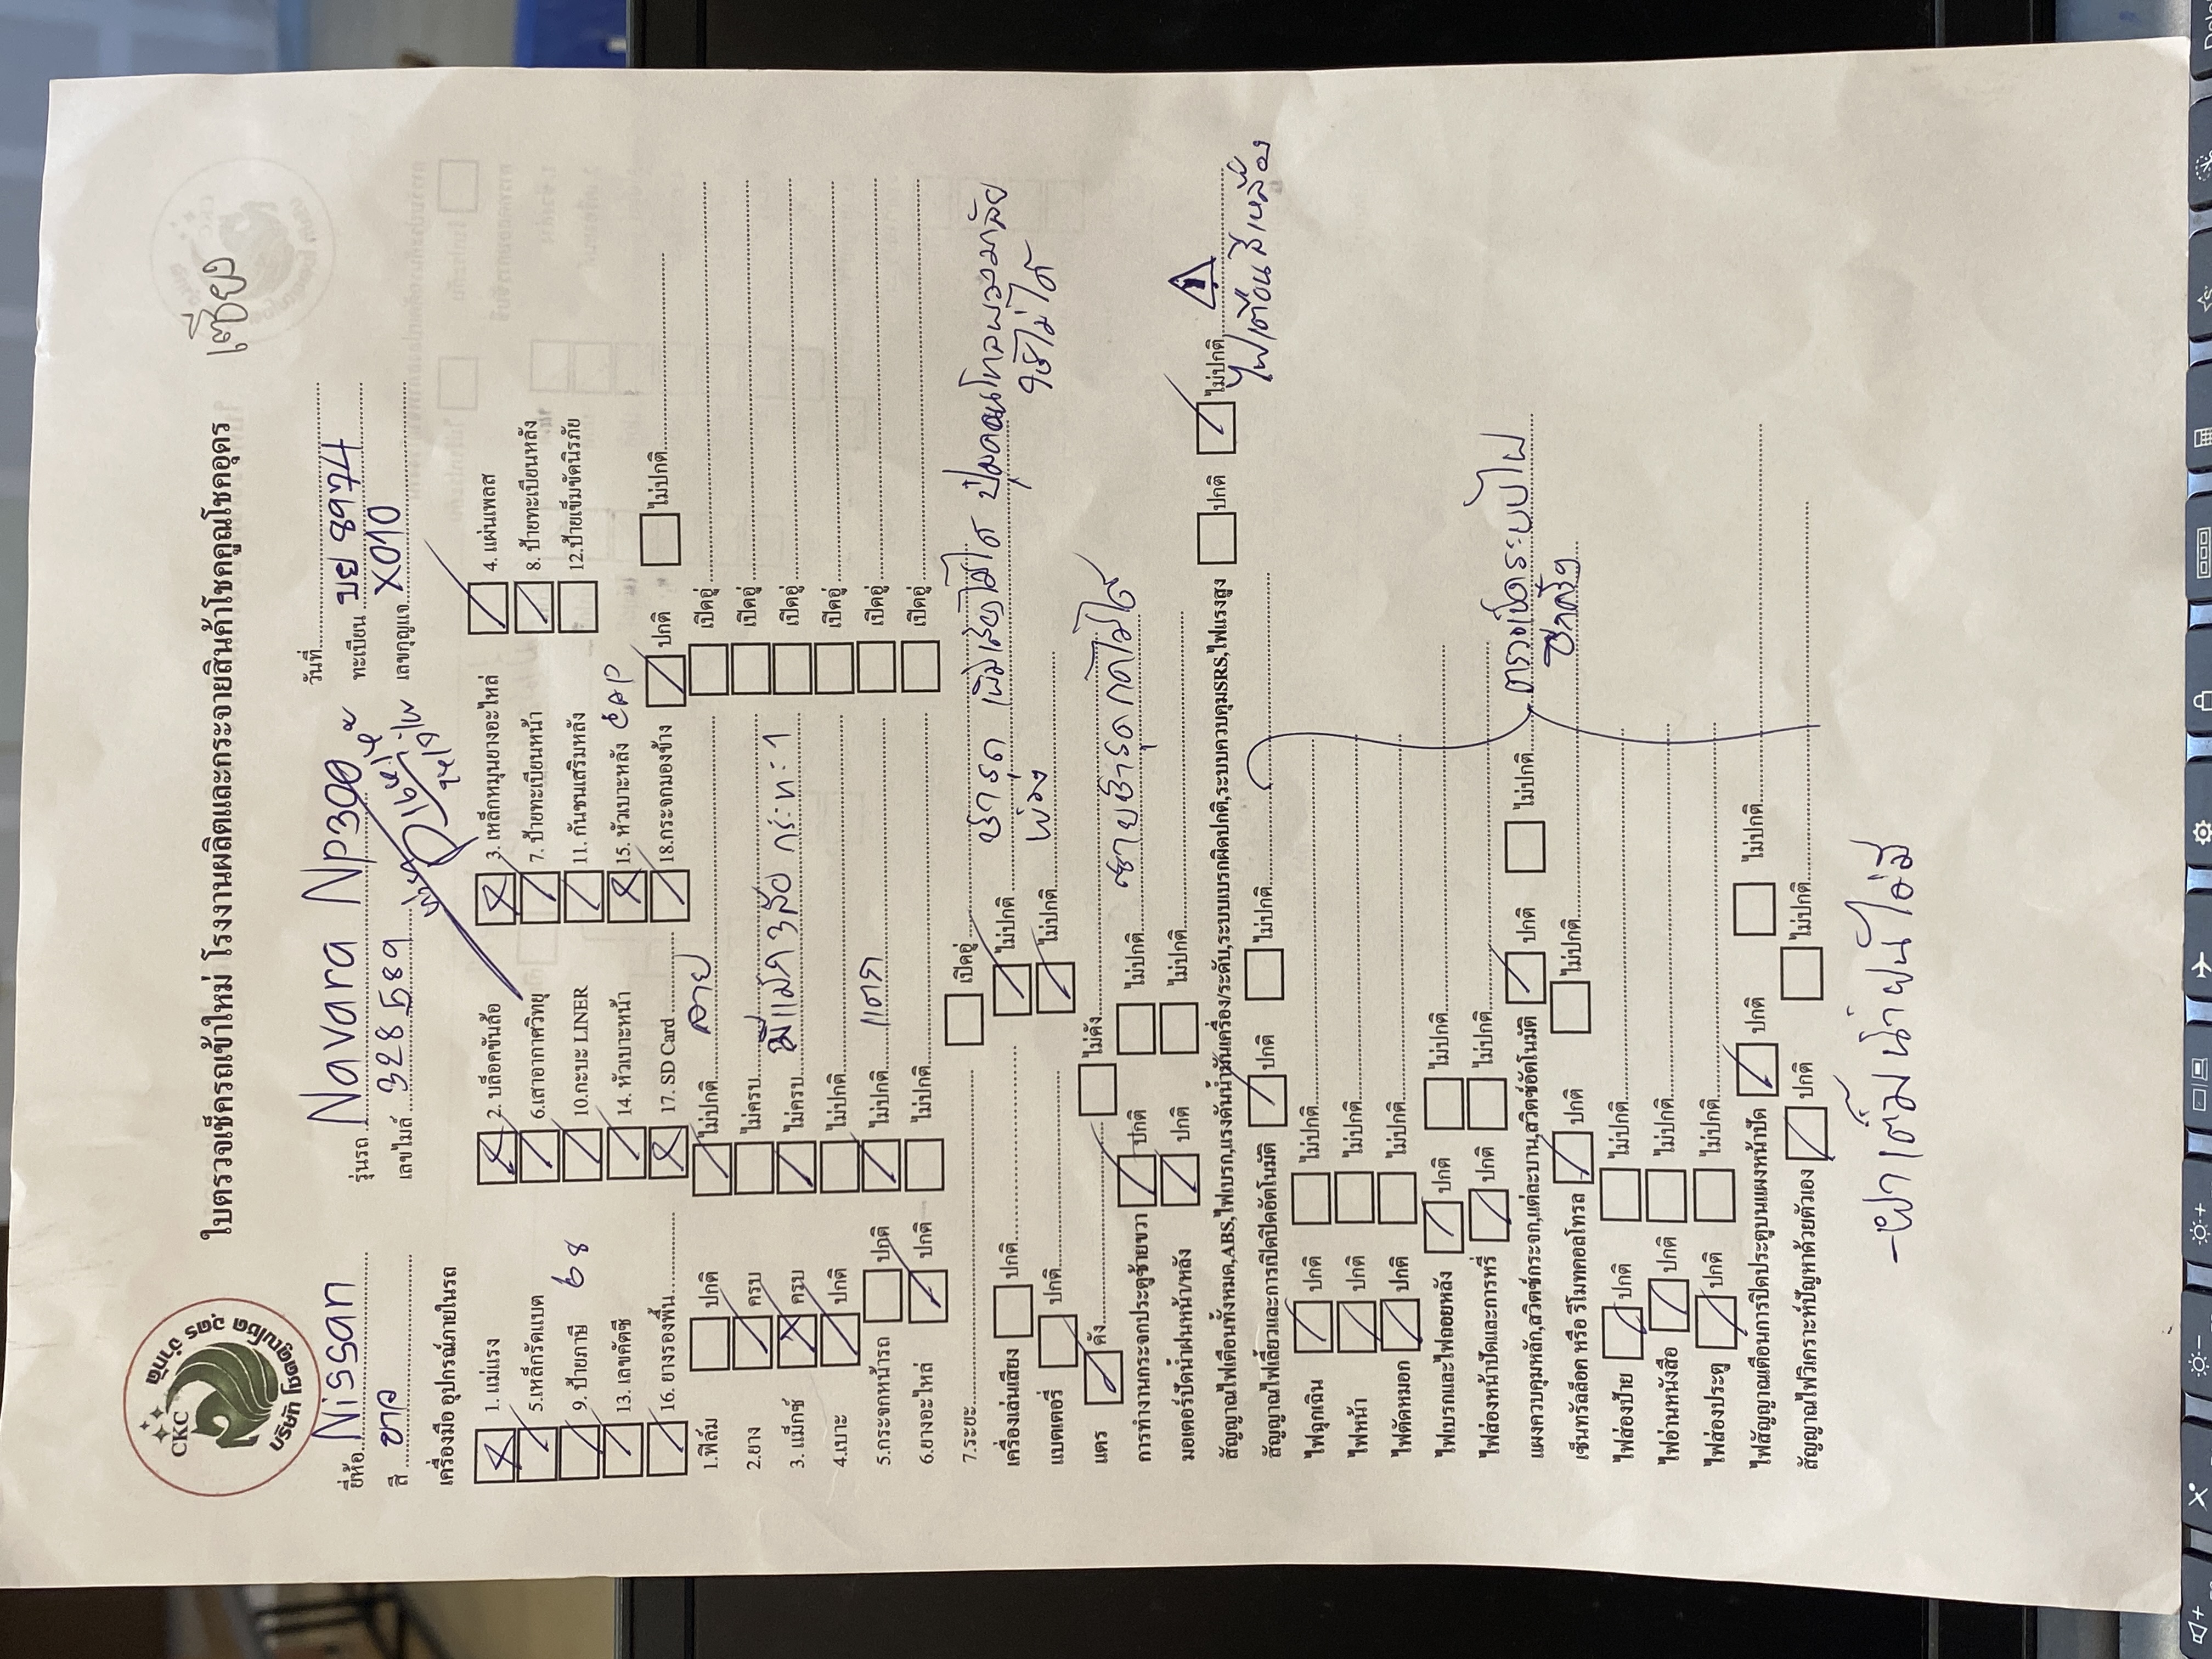 CKC
บริษัท โชคคูณโชค อุดร จำกัด
ใบตรวจเช็ครถเข้าใหม่ โรงงานผลิตและกระจายสินค้าโชคคูณโชคอุดร
ยี่ห้อ Nissan รุ่นรถ Navara Np300 วันที่
สี ขาว เลขไมล์ 328589 ทะเบียน บย 8974
เลขกุญแจ X010
เครื่องมือ อุปกรณ์ภายในรถ
1. แม่แรง 2. บล็อคขันล้อ 3. เหล็กหมุนยางอะไหล่ 4. แผ่นเพลส
5.เหล็กกรัดแบต 6.เสาอากาศวิทยุ 7. ป้ายทะเบียนหน้า 8. ป้ายทะเบียนหลัง
9. ป้ายภาษี 68 10.กะบะ LINER 11. กันชนเสริมหลัง 12.ป้ายเข็มขัดนิรภัย
13. เลขคัตซี 14. หัวเบาะหน้า 15. หัวเบาะหลัง cap
16. ยางรองพื้น 17. SD Card 18.กระจกมองข้าง ปกติ ไม่ปกติ
1.ฟิล์ม ปกติ ไม่ปกติ ลาย เปิดอู่
2.ยาง ครบ ไม่ครบ เปิดอู่
3. แม็กซ์ ครบ ไม่ครบ มีแม็ก 3 ล้อ กระทะ 1 เปิดอู่
4.เบาะ ปกติ ไม่ปกติ เปิดอู่
5.กระจกหน้ารถ ปกติ ไม่ปกติ แตก เปิดอู่
6.ยางอะไหล่ ปกติ ไม่ปกติ เปิดอู่
7.ระยะ เปิดอู่
เครื่องเล่นเสียง ปกติ ไม่ปกติ ชำรุด เพิ่มเสียงไม่ได้ ปุ่มคอนโทลพวงมาลัย
ใช้ไม่ได้
แบตเตอรี่ ปกติ ไม่ปกติ พ่วง
แตร ดัง ไม่ดัง
การทำงานกระจกประตูซ้ายขวา ปกติ ไม่ปกติ ซ้ายชำรุดกดไม่ได้
มอเตอร์ปัดน้ำฝนหน้า/หลัง ปกติ ไม่ปกติ
สัญญาณไฟเตือนทั้งหมด,ABS,ไฟเบรก,แรงดันน้ำมันเครื่อง/ระดับ,ระบบเบรกผิดปกติ,ระบบควบคุมSRS,ไฟแรงสูง ปกติ ไม่ปกติ
ไฟเตือนสีเหลือง
สัญญาณไฟเลี้ยวและการเปิดปิดอัตโนมัติ ปกติ ไม่ปกติ
ไฟฉุกเฉิน ปกติ ไม่ปกติ
ไฟหน้า ปกติ ไม่ปกติ
ไฟตัดหมอก ปกติ ไม่ปกติ
ไฟเบรกและไฟถอยหลัง ปกติ ไม่ปกติ
ไฟส่องหน้าปัดและการหรี่ ปกติ ไม่ปกติ
แผงควบคุมหลัก,สวิตซ์กระจก,แต่ละบาน,สวิตซ์อัตโนมัติ ปกติ ไม่ปกติ ตรวจเช็คระบบไฟ
ซีกครั้ง
เซ็นทรัลล็อค หรือ รีโมทคอลโทรล ปกติ ไม่ปกติ
ไฟส่องป้าย ปกติ ไม่ปกติ
ไฟอ่านหนังสือ ปกติ ไม่ปกติ
ไฟส่องประตู ปกติ ไม่ปกติ
ไฟสัญญาณเตือนการปิดประตูบนแผงหน้าปัด ปกติ ไม่ปกติ
สัญญาณไฟวิเคราะห์ปัญหาด้วยตัวเอง ปกติ ไม่ปกติ
-ฝาเติมน้ำฝนไม่มี